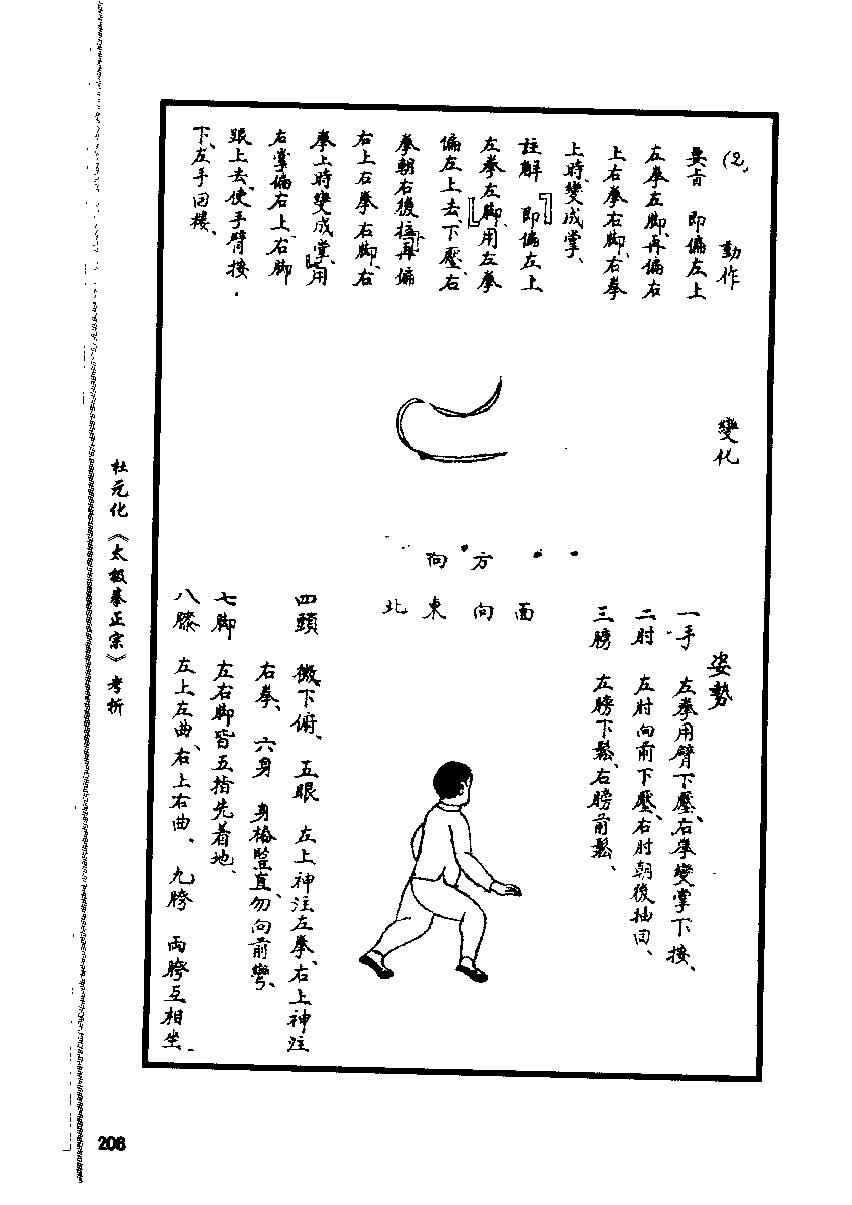 (2)
動作
要旨 即偏左上
左拳左脚、再偏右
上右拳右脚、右拳
上時變成掌、
註解 即偏左上
左拳左脚、用左拳
偏左上去下壓、右
拳朝右後拉、再偏
右上右拳右脚、右
拳上時變成掌、用
右掌偏右上、右脚
跟上去、使手臂接、
下、左手回樓、
變化
方向
面向東北
姿勢
一手 左拳用臂下壓、右拳變掌下接、
二肘 左肘向前下壓、右肘朝後抽回、
三膀 左膀下鬆、右膀前鬆、
四頭 微下俯、五眼 左上神注左拳、右上神注
右拳、六身 身樁豎直、勿向前彎、
七脚 左右脚皆五指先着地、
八膝 左上左曲、右上右曲、九胯 兩胯互相坐、
杜元化《太极拳正宗》考析
206